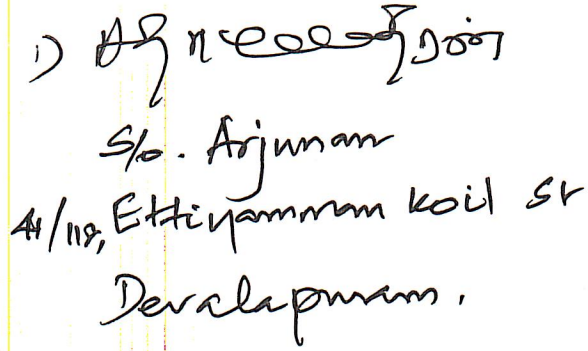 1)
S/o. Arjunan
41/118, Ettiyamman Koil St
Devalapuram.